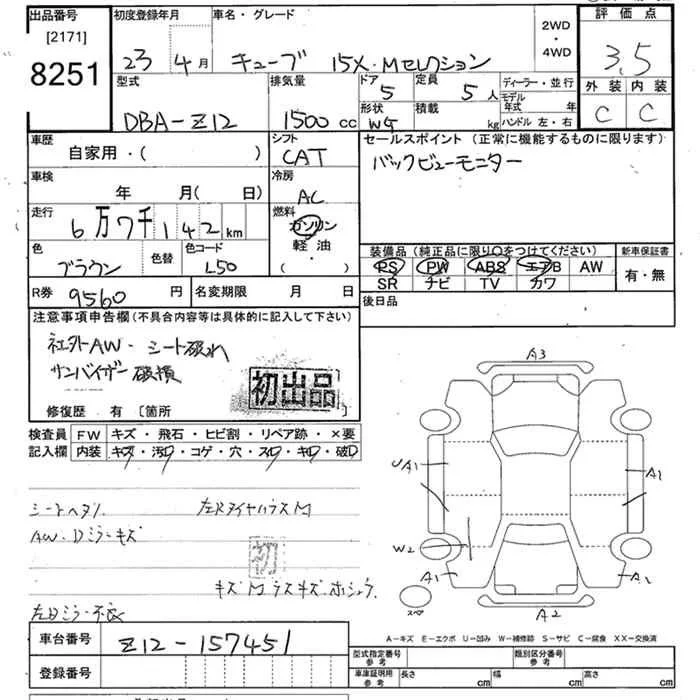 出品番号 初度登録年月 車名・グレード 2WD・4WD 評価点
[2171]
8251
23年 4月 キューブ 15X・Mセレクション 3.5
型式 排気量 ドア 定員 ディーラー・並行 外装 内装
DBA-Z12 1500cc 5 5人 モデル年式 年 C C
形状 積載 ハンドル 左・右
WG kg
車歴 シフト セールスポイント (正常に機能するものに限ります)
自家用・( ) CAT バックビューモニター
車検 冷房
年 月( 日) AC
走行 燃料
6万7千142km ガソリン
軽油
( ・ )
色 色替 色コード 装備品 (純正品に限り○をつけてください) 新車保証書
ブラウン L50 PS PW ABS エアB AW 有・無
SR ナビ TV カワ
R券 9560円 名変期限 月 日 後日品
注意事項申告欄(不具合内容等は具体的に記入して下さい)
社外AW・シート破れ
サンバイザー破損
初出品
修復歴 有 [箇所 ]
検査員 FW キズ・飛石・ヒビ割・リペア跡・×要
記入欄 内装 キズ・汚レ・コゲ・穴・スレ・キレ・破レ
シートヘタリ 左Rタイヤハウス M
AW・Dミラーキズ
初
左Dミラー不良
A3
UA1
A1
W2
A1
A1
スペア
A2
A-キズ E-エクボ U-凹み W-補修跡 S-サビ C-腐食 XX-交換済
車台番号 Z12-157451
型式指定番号 参考 類別区分番号 参考
登録番号
車庫証明用 参考 長さ cm 幅 cm 高さ cm